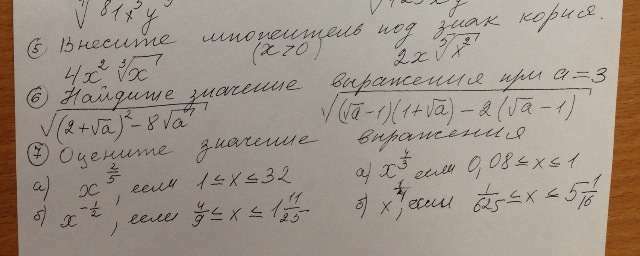 ∜81x³y³ √125x y
⑤ Внесите множитель под знак корня.
4x² ∛x (x>0) 2x ∛x²
⑥ Найдите значение выражения при a=3
√((2+√a)² − 8√a) √((√a−1)(1+√a) − 2(√a−1))
⑦ Оцените значение выражения
а) x^(2/5), если 1≤x≤32 а) x^(4/3), если 0,08≤x≤1
б) x^(−1/2), если 4/9≤x≤1 11/25 б) x^(1/4), если 1/625≤x≤5 1/16